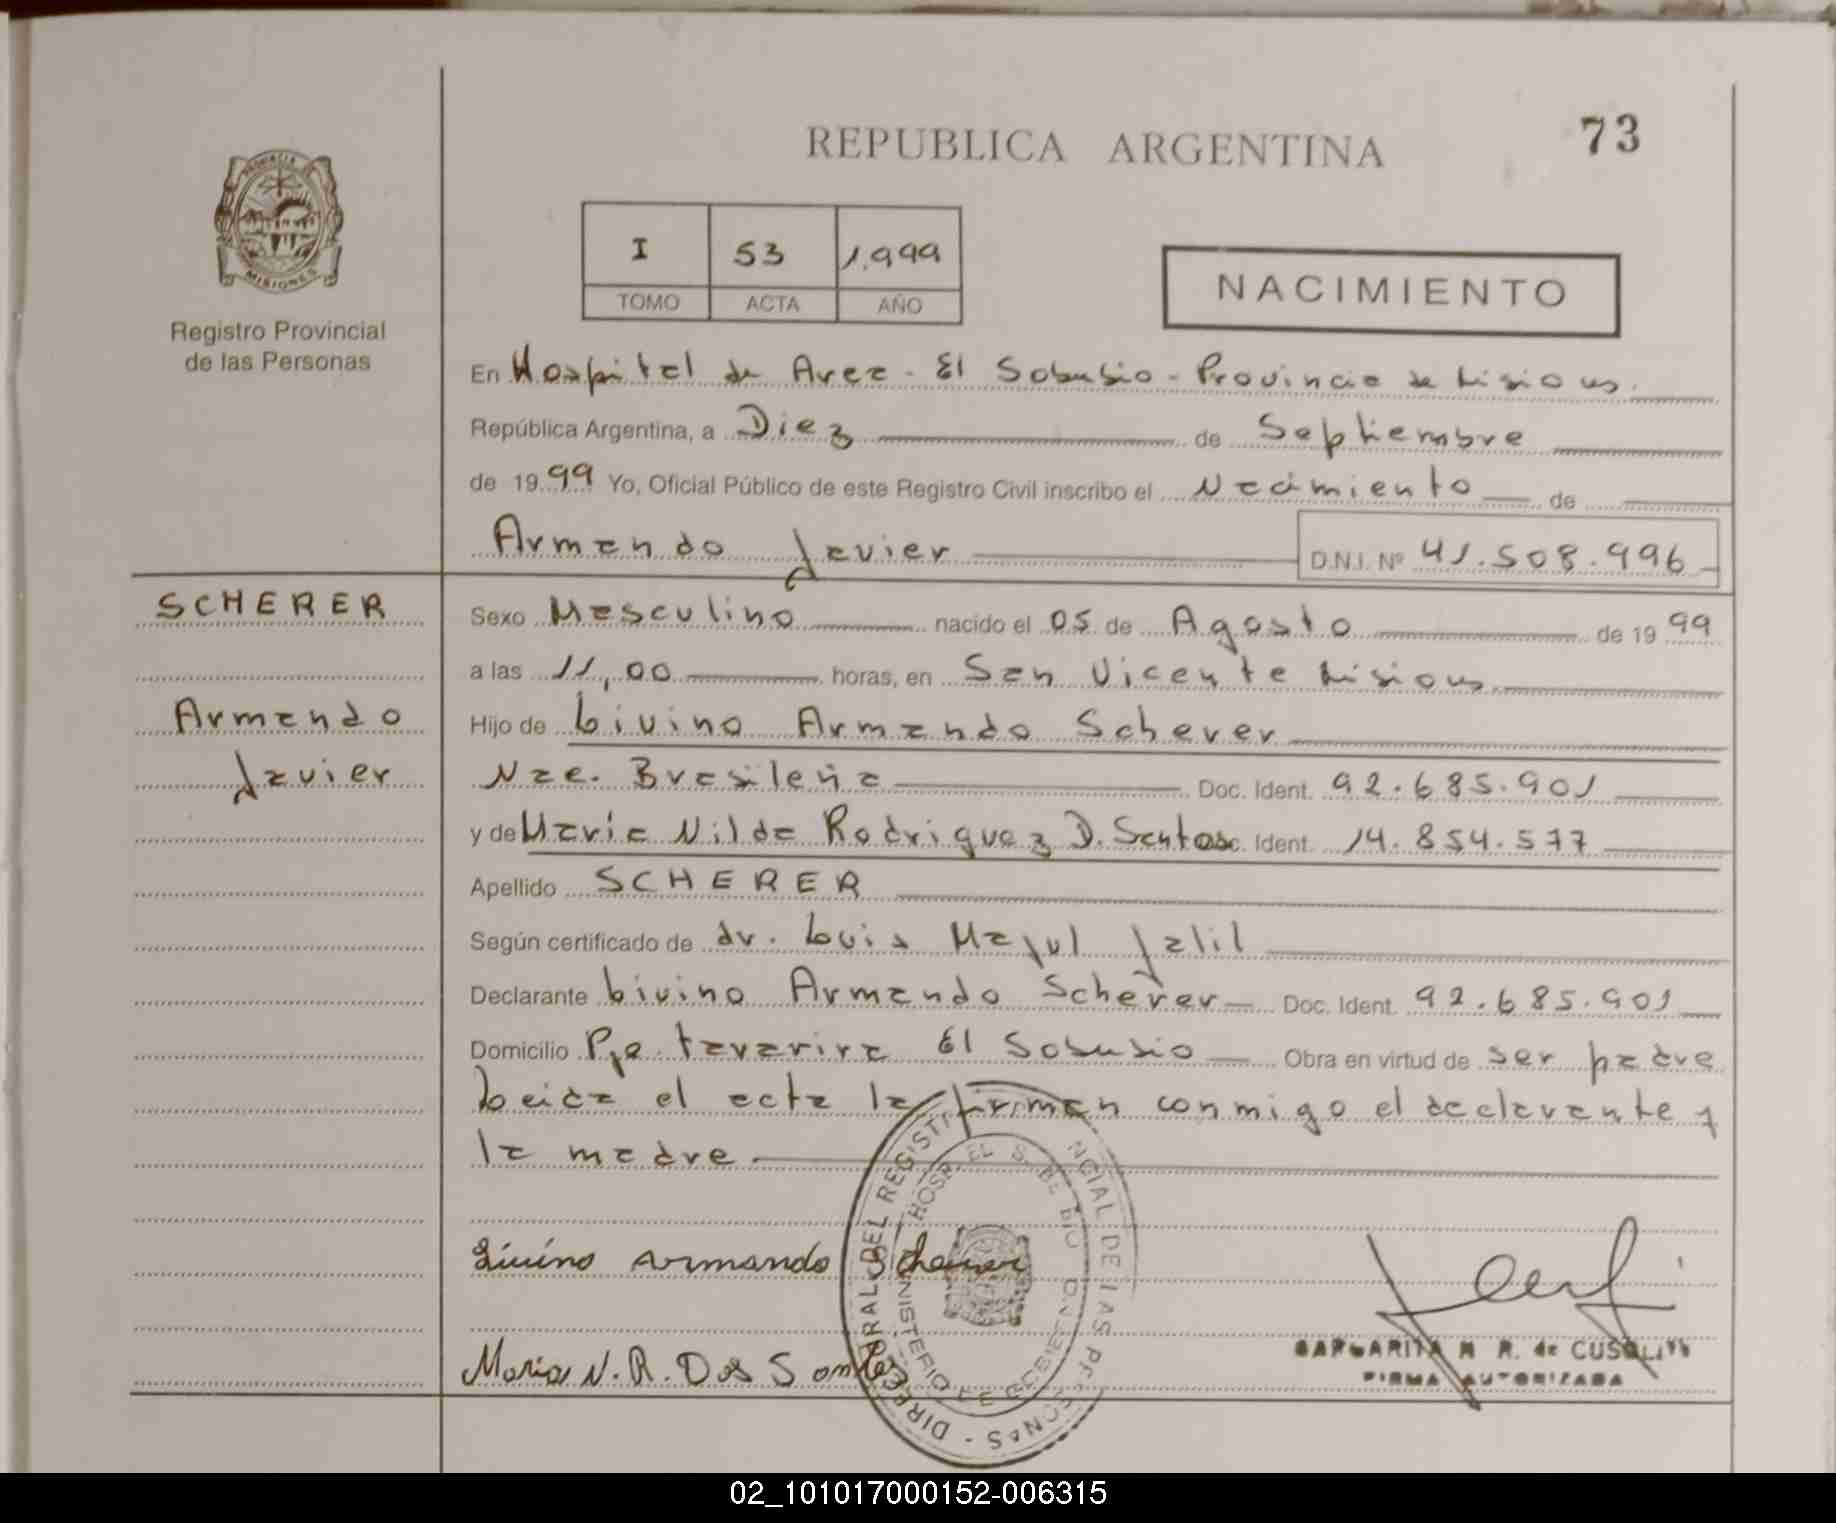 REPUBLICA ARGENTINA
73
PROVINCIA
MISIONES
Registro Provincial
de las Personas
I 53 1.999
TOMO ACTA AÑO
NACIMIENTO
En Hospital de Area - El Soberbio - Provincia de Misiones.
República Argentina, a Diez de Septiembre
de 19 99 Yo, Oficial Público de este Registro Civil inscribo el Nacimiento de
Armando Javier D.N.I. Nº 41.508.996
SCHERER
Armando
Javier
Sexo Masculino nacido el 05 de Agosto de 19 99
a las 11,00 horas, en San Vicente Misiones
Hijo de Livino Armando Scherer
Nac. Brasileña Doc. Ident. 92.685.901
y de Maria Nilda Rodriguez D. Santos Doc. Ident. 14.854.577
Apellido SCHERER
Según certificado de dr. Luis Majul Jalil
Declarante Livino Armando Scherer Doc. Ident. 92.685.901
Domicilio Pje. Tararira El Soberbio Obra en virtud de ser padre
Leida el acta la firman conmigo el declarante y
la madre
Livino Armando Scherer
Maria N. R. Dos Santos
MARGARITA N R. de CUSOLITO
FIRMA AUTORIZADA
02_101017000152-006315